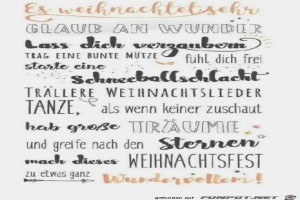 Es weihnachtet sehr
GLAUB AN WUNDER
Lass dich verzaubern
TRAG EINE BUNTE MÜTZE fühl dich frei
starte eine
Schneeballschlacht
TRÄLLERE WEIHNACHTSLIEDER
TANZE, als wenn keiner zuschaut
hab große TRÄUME
und greife nach den Sternen
mach dieses WEIHNACHTSFEST
zu etwas ganz Wundervollem!
gefunden auf FUNPOT.NET